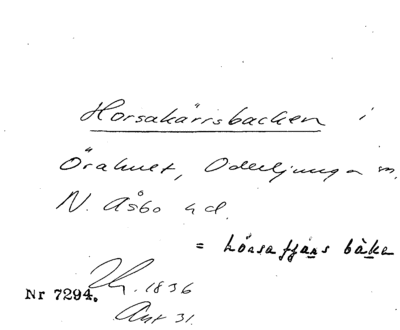 Horsakärrsbacken i
Örahult, Oderljunga sn.
N. Åsbo hd.
= hössa fjäns bäka
Nr 7294.
1836
Ant 31.